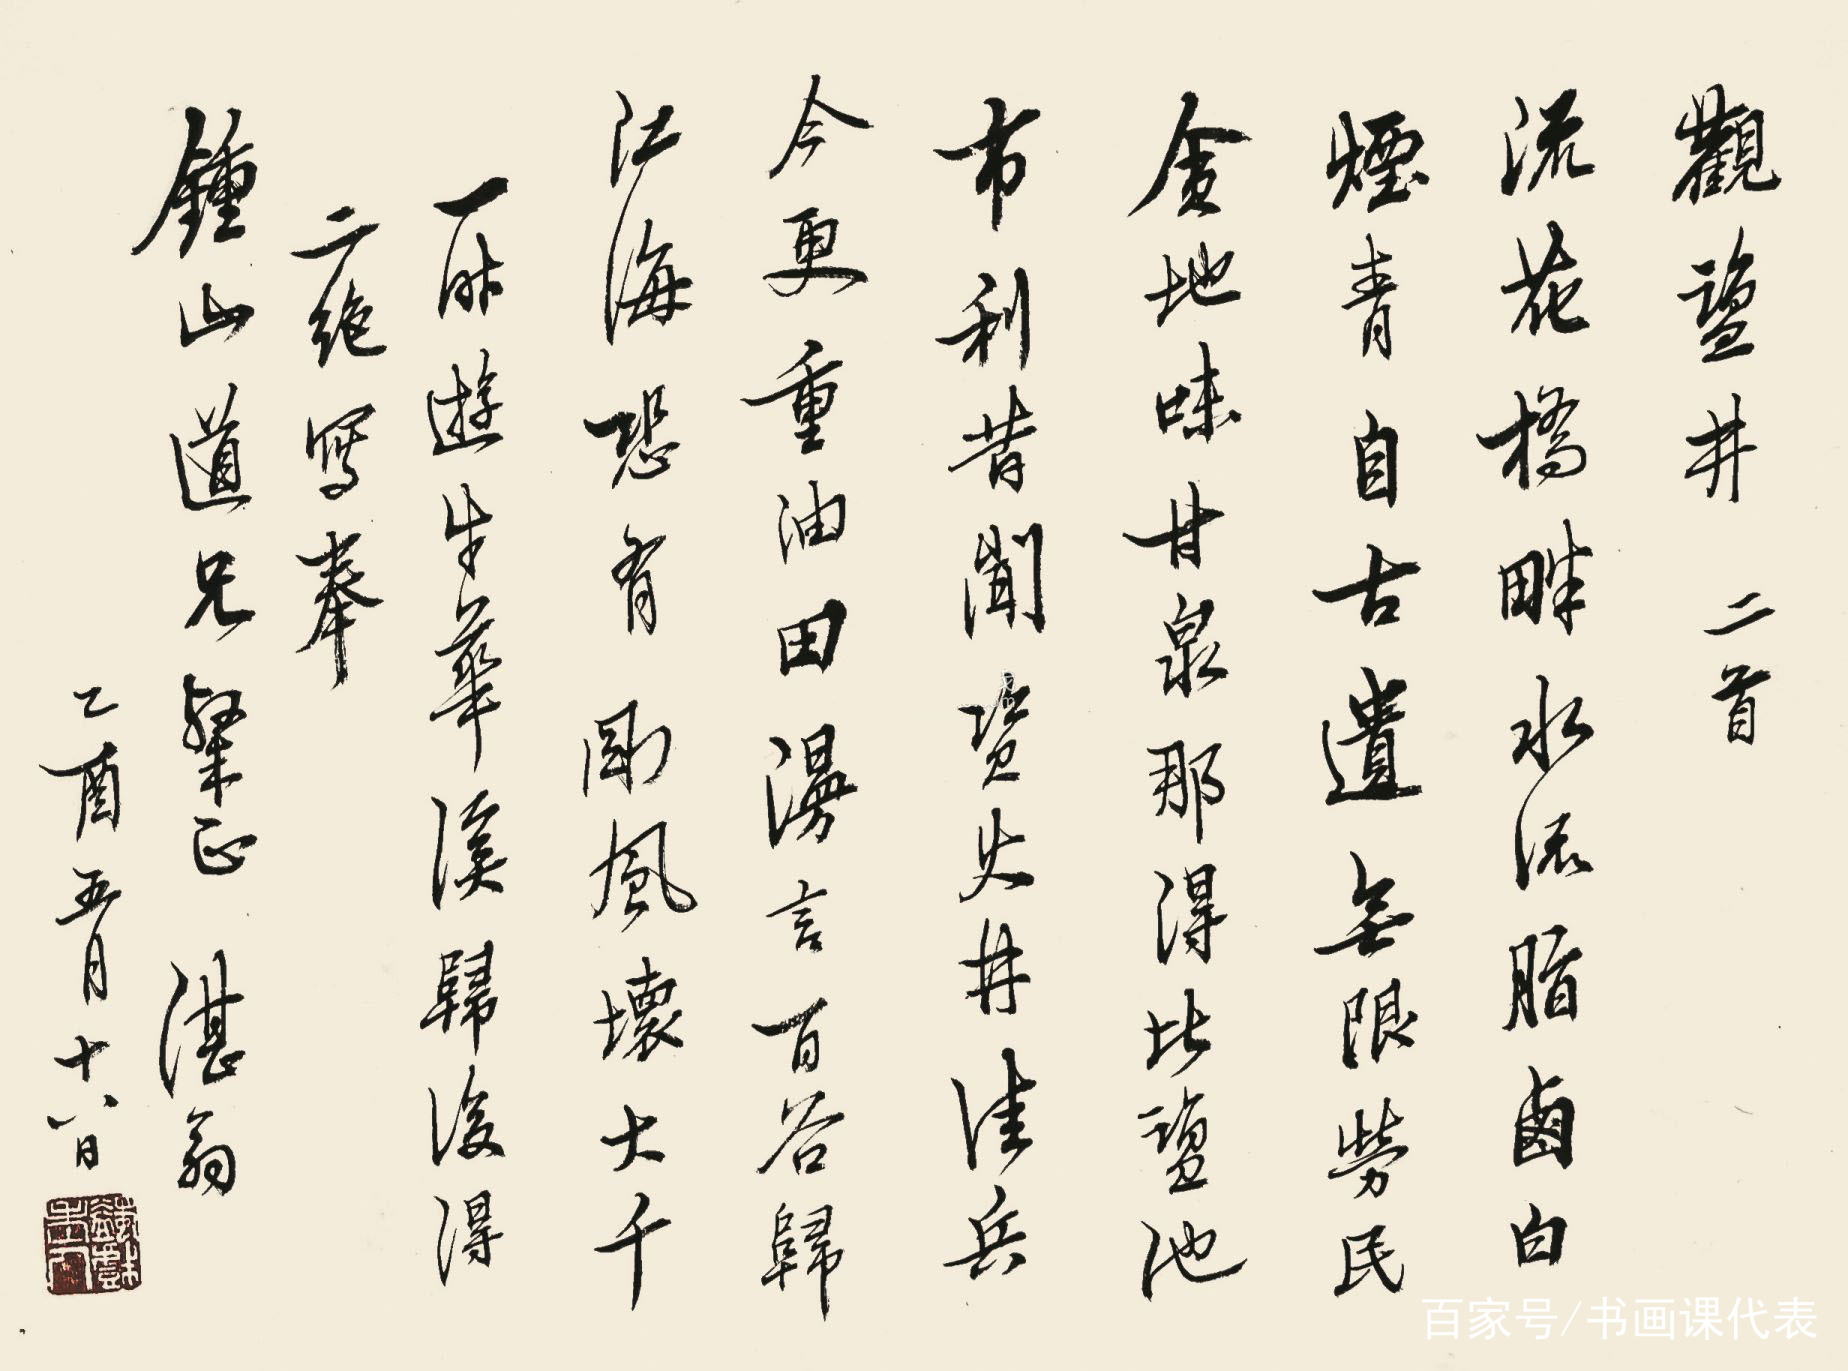 觀鹽井 二首
流花橋畔水流脂鹵白
煙青自古遺無限勞民
貪地味甘泉那得比鹽池
市利昔聞資火井佳兵
今更重油田漫言百谷歸
江海恐有剛風壞大千
一時遊牛華溪歸後得
二絕寫奉
鍾山道兄粲正 湛翁
乙酉五月十八日
蠲戲老人
百家号/书画课代表